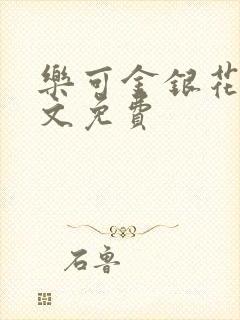 樂可金銀花
文免費
石魯